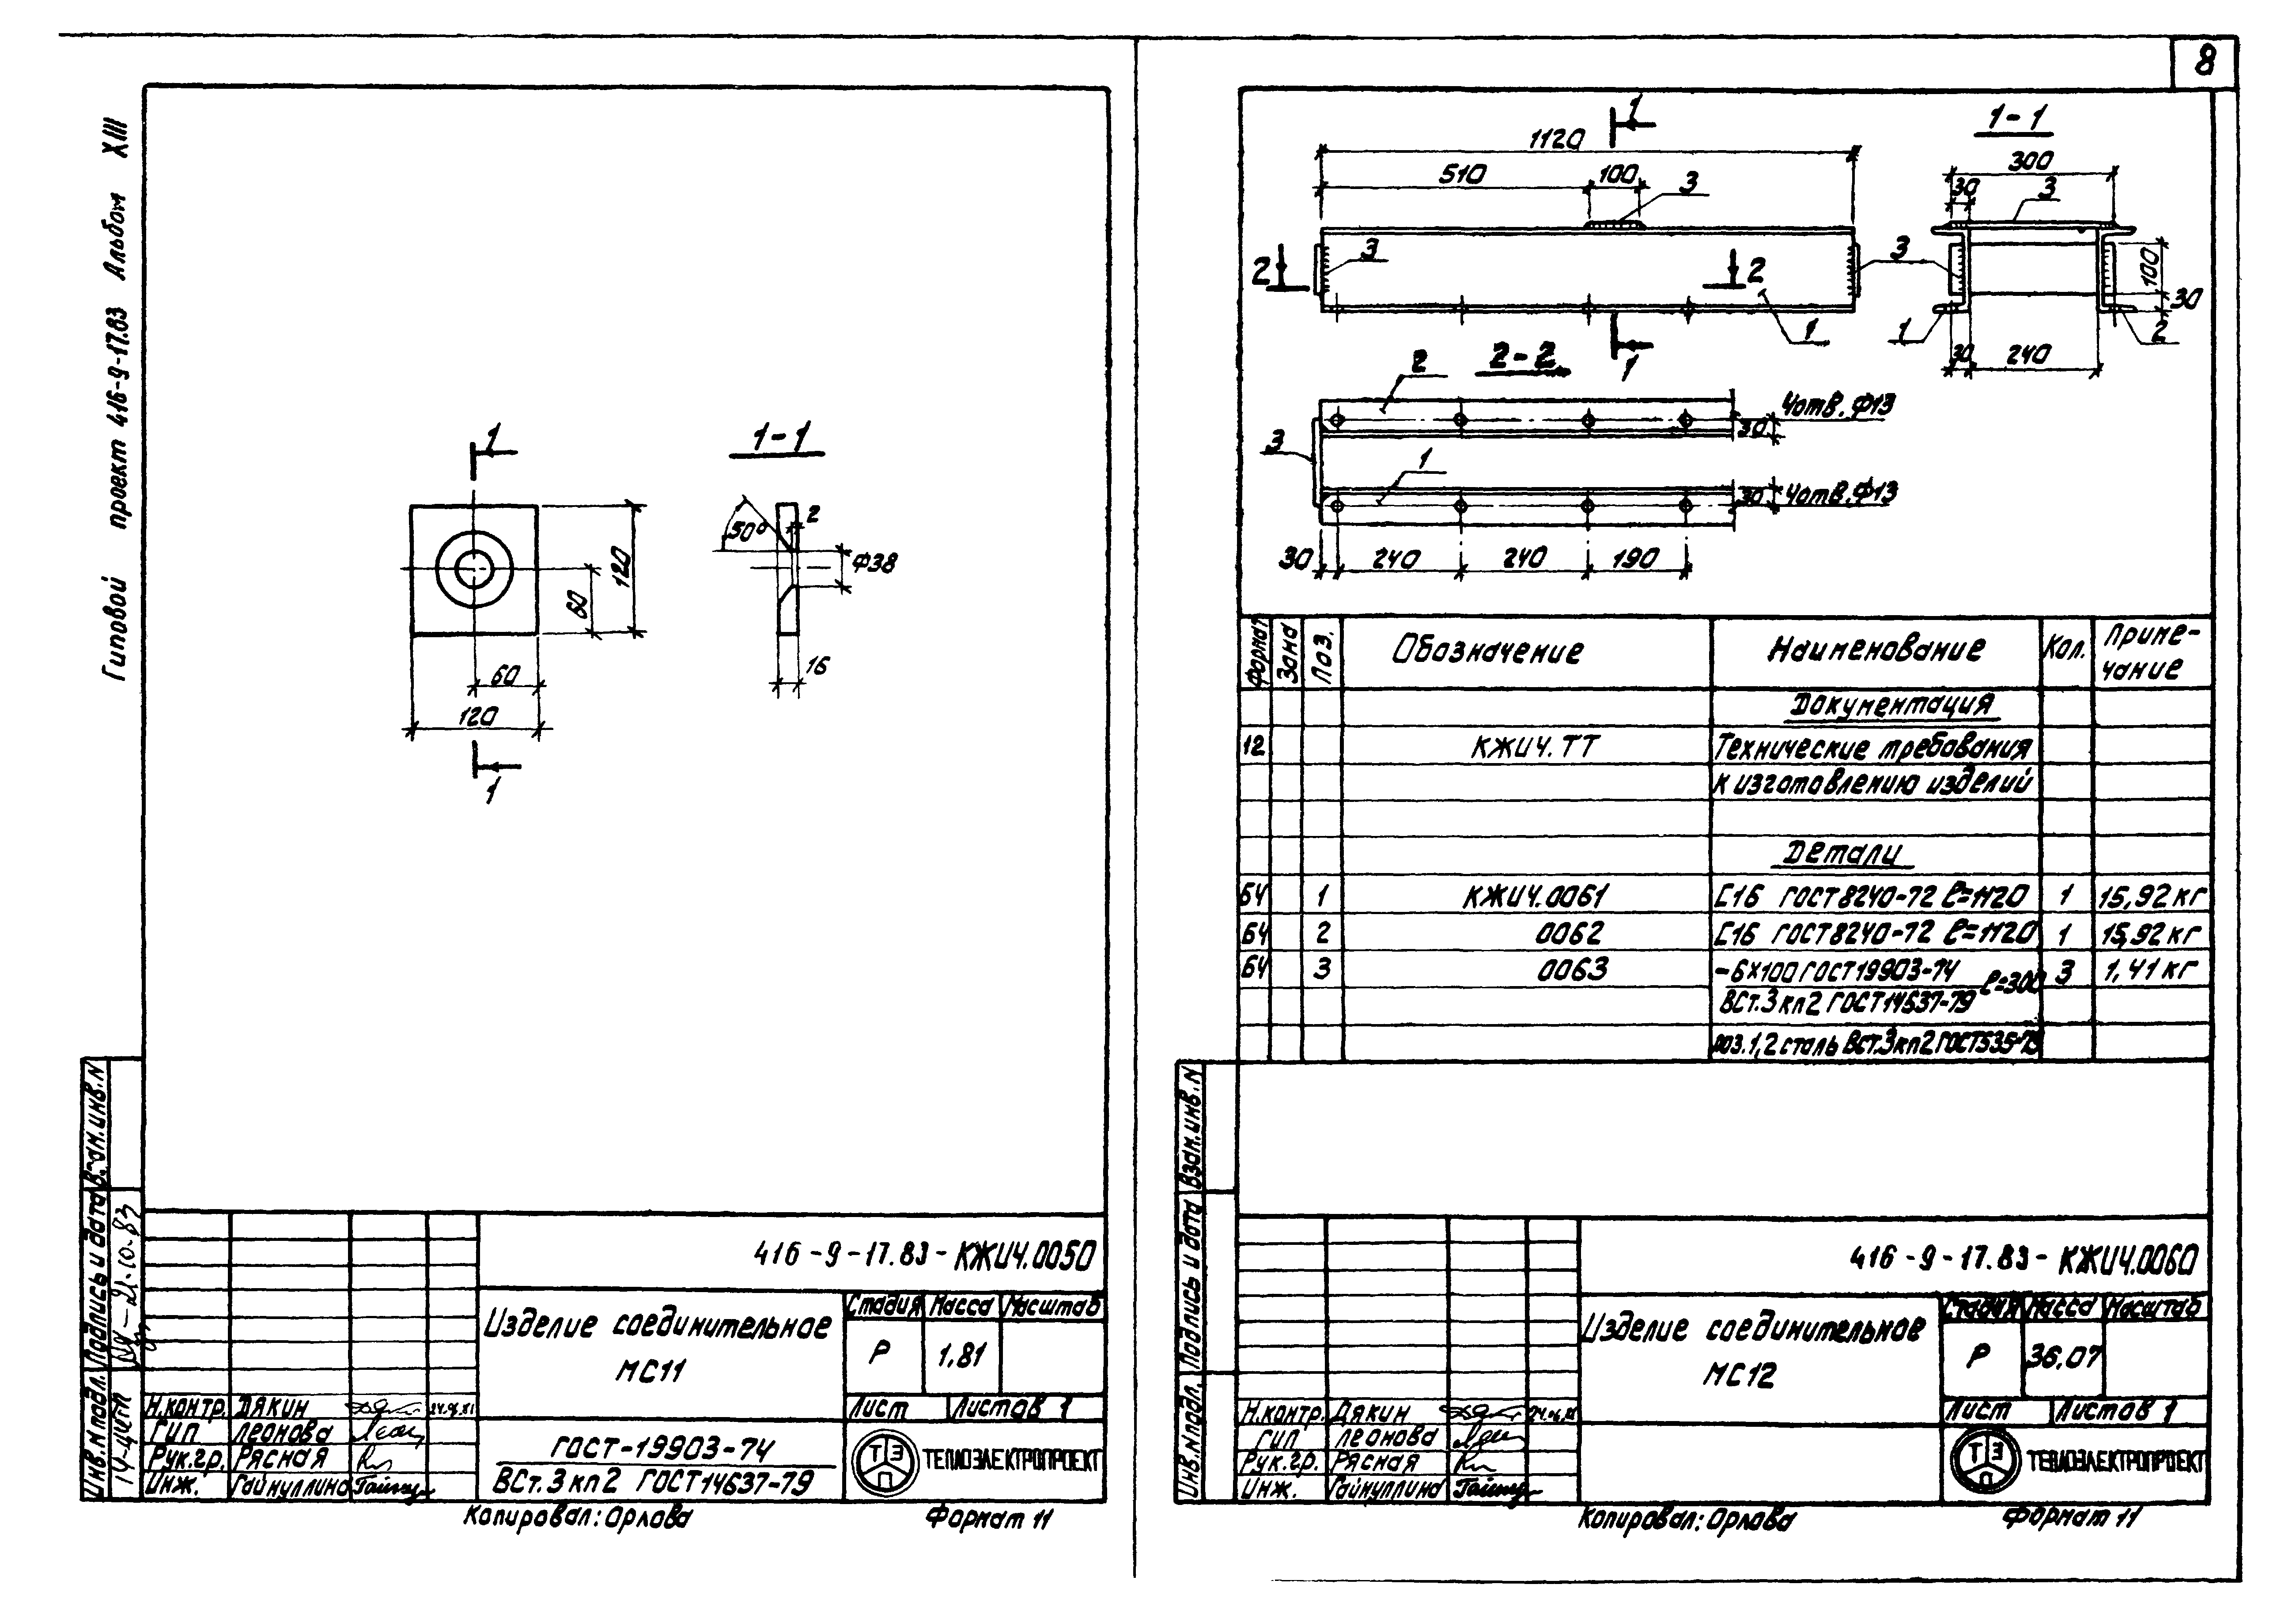 8
Типовой проект 416-9-17.83 Альбом XIII
1
1-1
50°
2
Ф38
120
60
16
60
120
1
Взам.инв.N
Подпись и дата
21.10.83
Инв.N подл.
416-9-17.83-КЖИЧ.0050
Изделие соединительное
МС11
Стадия Масса Масштаб
Р 1,81
Лист Листов 1
Н.контр. Дякин
ГИП Леонова
Рук.гр. Рясная
Инж. Гайнуллина
ГОСТ-19903-74
ВСт.3кп2 ГОСТ14637-79
ТЭП
ТЕПЛОЭЛЕКТРОПРОЕКТ
Копировал: Орлова Формат 11
1
1120
510 100 3
3
2 2
1
1
1-1
300
30 3
3
100
30
1 2
30 240
2-2
2
4отв.Ф13
30
3
1
30 4отв.Ф13
30 240 240 190
Формат Зона Поз. Обозначение Наименование Кол. Примечание
Документация
12 КЖИЧ.ТТ Технические требования
к изготовлению изделий
Детали
БЧ 1 КЖИЧ.0061 С16 ГОСТ8240-72 ℓ=1120 1 15,92кг
БЧ 2 0062 С16 ГОСТ8240-72 ℓ=1120 1 15,92кг
БЧ 3 0063 -6×100 ГОСТ19903-74 ℓ=300 3 1,41кг
ВСт.3кп2 ГОСТ14637-79
поз.1,2 сталь ВСт.3кп2 ГОСТ535-79
Взам.инв.N
Подпись и дата
Инв.N подл.
416-9-17.83-КЖИЧ.0060
Изделие соединительное
МС12
Стадия Масса Масштаб
Р 36,07
Лист Листов 1
Н.контр. Дякин
ГИП Леонова
Рук.гр. Рясная
Инж. Гайнуллина
ТЭП
ТЕПЛОЭЛЕКТРОПРОЕКТ
Копировал: Орлова Формат 11